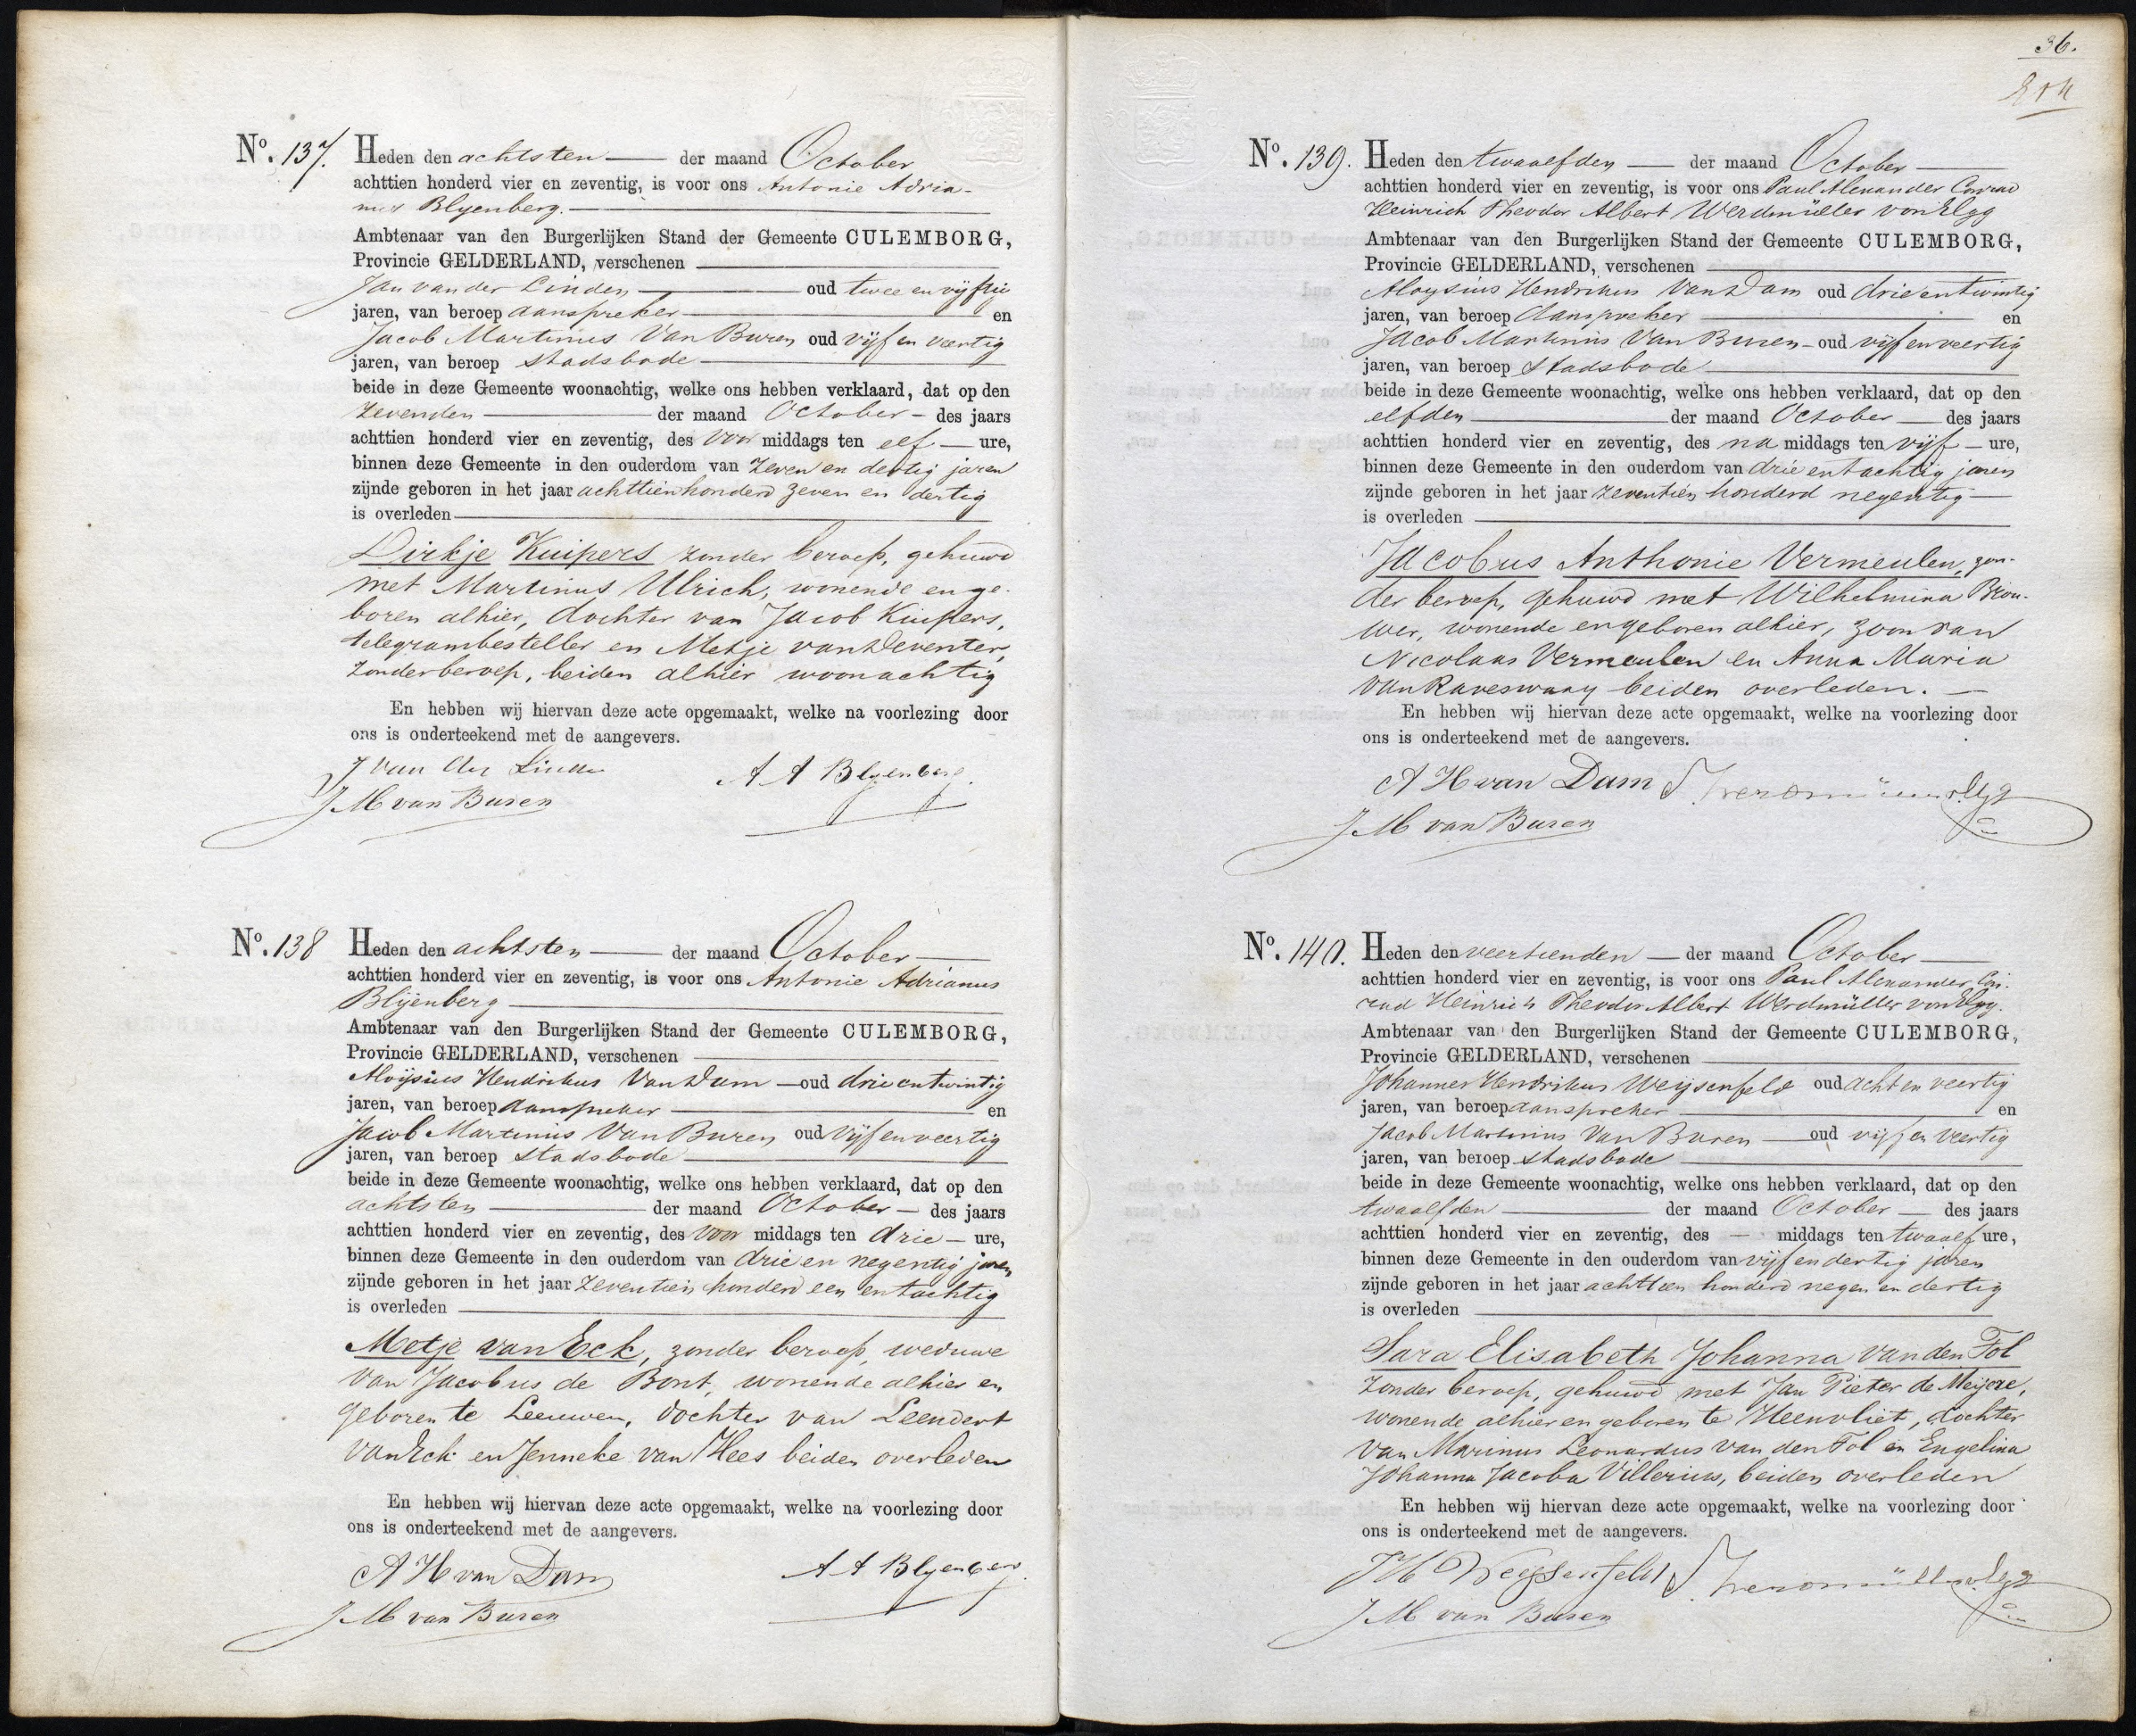 No. 137. Heden den achtsten — der maand October
achttien honderd vier en zeventig, is voor ons Antonie Adria-
nus Blyenberg. —
Ambtenaar van den Burgerlijken Stand der Gemeente CULEMBORG,
Provincie GELDERLAND, verschenen —
Jan van der Linden — oud twee en vijftig
jaren, van beroep aanspreker — en
Jacob Martinus Van Buren oud vijf en veertig
jaren, van beroep stadsbode —
beide in deze Gemeente woonachtig, welke ons hebben verklaard, dat op den
zevenden — der maand October — des jaars
achttien honderd vier en zeventig, des voor middags ten elf — ure,
binnen deze Gemeente in den ouderdom van zeven en dertig jaren
zijnde geboren in het jaar achttienhonderd zeven en dertig
is overleden —
Dirkje Kuipers zonder beroep, gehuwd
met Martinus Ulrich, wonende en ge-
boren alhier, dochter van Jacob Kuipers,
telegrambesteller en Metje van Deventer,
zonder beroep, beiden alhier woonachtig
En hebben wij hiervan deze acte opgemaakt, welke na voorlezing door
ons is onderteekend met de aangevers.
J van der Linden A A Blyenberg.
J M van Buren
No. 138 Heden den achtsten — der maand October —
achttien honderd vier en zeventig, is voor ons Antonie Adrianus
Blijenberg —
Ambtenaar van den Burgerlijken Stand der Gemeente CULEMBORG,
Provincie GELDERLAND, verschenen —
Aloijsius Hendrikus Van Dam — oud drie en twintig
jaren, van beroep aanspreker — en
Jacob Martinus Van Buren oud vijf en veertig
jaren, van beroep stadsbode —
beide in deze Gemeente woonachtig, welke ons hebben verklaard, dat op den
achtsten — der maand October — des jaars
achttien honderd vier en zeventig, des voor middags ten drie — ure,
binnen deze Gemeente in den ouderdom van drie en negentig jaren
zijnde geboren in het jaar zeventien honderd een en tachtig
is overleden —
Metje van Eck, zonder beroep, weduwe
van Jacobus de Bont, wonende alhier en
geboren te Leeuwen, dochter van Leendert
van Eck en Jenneke van Hees beiden overleden
En hebben wij hiervan deze acte opgemaakt, welke na voorlezing door
ons is onderteekend met de aangevers.
A H van Dam A A Blyenberg.
J M van Buren
36.
No. 139. Heden den twaalfden — der maand October —
achttien honderd vier en zeventig, is voor ons Paul Alexander Conrad
Heinrich Theodor Albert Werdmüller von Elgg
Ambtenaar van den Burgerlijken Stand der Gemeente CULEMBORG,
Provincie GELDERLAND, verschenen —
Aloysius Hendrikus Van Dam oud drie en twintig
jaren, van beroep Aanspreker — en
Jacob Martinus Van Buren — oud vijf en veertig
jaren, van beroep stadsbode —
beide in deze Gemeente woonachtig, welke ons hebben verklaard, dat op den
elfden — der maand October — des jaars
achttien honderd vier en zeventig, des na middags ten vijf — ure,
binnen deze Gemeente in den ouderdom van drie en tachtig jaren
zijnde geboren in het jaar zeventien honderd negentig —
is overleden —
Jacobus Anthonie Vermeulen, zon-
der beroep, gehuwd met Wilhelmina Brou-
wer, wonende en geboren alhier, zoon van
Nicolaas Vermeulen en Anna Maria
van Raveswaay beiden overleden. —
En hebben wij hiervan deze acte opgemaakt, welke na voorlezing door
ons is onderteekend met de aangevers.
A H van Dam Werdmüller v. Elgg
J M van Buren
No. 140. Heden den veertienden — der maand October —
achttien honderd vier en zeventig, is voor ons Paul Alexander Con-
rad Heinrich Theodor Albert Werdmüller von Elgg.
Ambtenaar van den Burgerlijken Stand der Gemeente CULEMBORG,
Provincie GELDERLAND, verschenen —
Johannes Hendrikus Weijsenfeld oud acht en veertig
jaren, van beroep aanspreker — en
Jacob Martinus Van Buren — oud vijf en veertig
jaren, van beroep stadsbode —
beide in deze Gemeente woonachtig, welke ons hebben verklaard, dat op den
twaalfden — der maand October — des jaars
achttien honderd vier en zeventig, des — middags ten twaalf ure,
binnen deze Gemeente in den ouderdom van vijf en dertig jaren
zijnde geboren in het jaar achttien honderd negen en dertig
is overleden —
Sara Elisabeth Johanna van den Tol
zonder beroep, gehuwd met Jan Pieter de Meijere,
wonende alhier en geboren te Heenvliet, dochter
van Marinus Leonardus van den Tol en Engelina
Johanna Jacoba Villerius, beiden overleden
En hebben wij hiervan deze acte opgemaakt, welke na voorlezing door
ons is onderteekend met de aangevers.
J H Weijsenfeld Werdmüller v. Elgg
J M van Buren